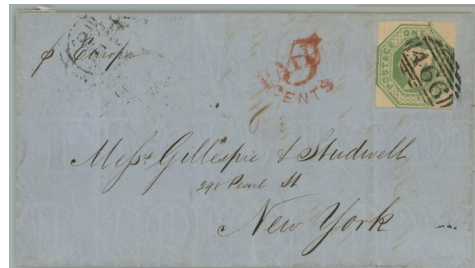 p Europa
PAID
5
CENTS
POSTAGE ONE
466
Messrs Gillespie & Studwell
298 Pearl St
New York